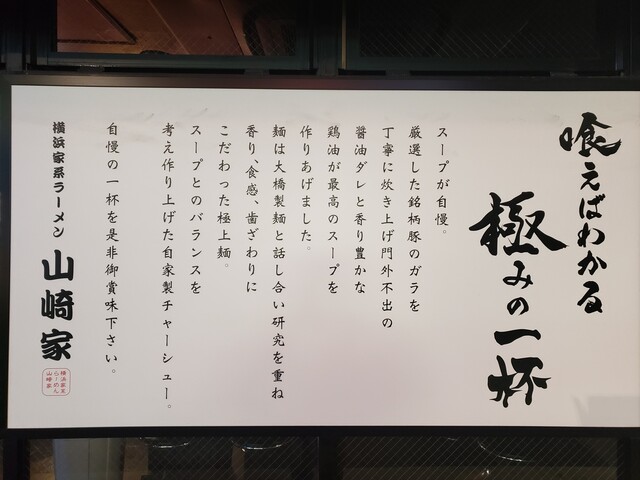 喰えばわかる
極みの一杯
スープが自慢。
厳選した銘柄豚のガラを
丁寧に炊き上げ門外不出の
醤油ダレと香り豊かな
鶏油が最高のスープを
作りあげました。
麺は大橋製麺と話し合い研究を重ね
香り、食感、歯ざわりに
こだわった極上麺。
スープとのバランスを
考え作り上げた自家製チャーシュー。
自慢の一杯を是非御賞味下さい。
横浜家系ラーメン
山崎家
横浜家系
らーめん
山崎家